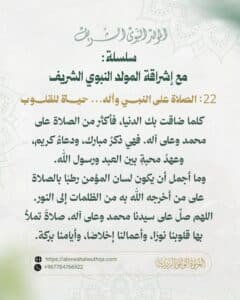 سلسلة:
مع إشراقة المولد النبوي الشريف
22: الصلاة على النبي وآله... حياة للقلوب
كلما ضاقت بك الدنيا، فأكثر من الصلاة على
محمد وعلى آله. فهي ذكرٌ مبارك، ودعاءٌ كريم،
وعهدُ محبةٍ بين العبد ورسول الله.
وما أجمل أن يكون لسان المؤمن رطبًا بالصلاة
على من أخرجه الله به من الظلمات إلى النور.
اللهم صلِّ على سيدنا محمد وعلى آله، صلاةً تملأ
بها قلوبنا نورًا، وأعمالنا إخلاصًا، وأيامنا بركة.
+967784766922